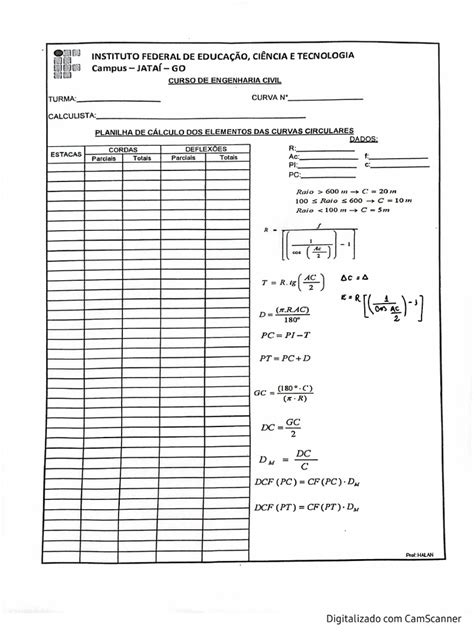 INSTITUTO FEDERAL DE EDUCAÇÃO, CIÊNCIA E TECNOLOGIA
Campus – JATAÍ – GO
CURSO DE ENGENHARIA CIVIL
TURMA: CURVA N°
CALCULISTA:
PLANILHA DE CÁLCULO DOS ELEMENTOS DAS CURVAS CIRCULARES
DADOS:
ESTACAS CORDAS DEFLEXÕES
Parciais Totais Parciais Totais
R:
Ac: f:
PI: c:
PC:
Raio > 600 m → C = 20 m
100 ≤ Raio ≤ 600 → C = 10 m
Raio < 100 m → C = 5m
R = f / [(1 / cos (Ac/2)) − 1]
T = R.tg(AC/2) ΔC = Δ
E = R [(1 / cos AC/2) - 1]
D = (π.R.AC) / 180°
PC = PI − T
PT = PC + D
GC = (180° · C) / (π · R)
DC = GC / 2
D_M = DC / C
DCF (PC) = CF(PC) · D_M
DCF (PT) = CF(PT) · D_M
Prof: HALAN
Digitalizado com CamScanner